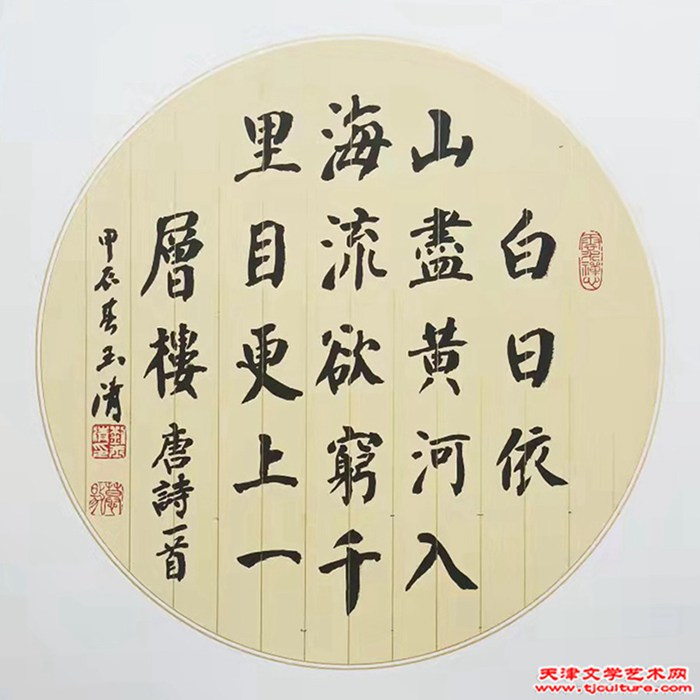 白日依
山盡黃河入
海流欲窮千
里目更上一
層樓唐詩一首
甲辰春玉清
天津文学艺术网
www.tjculture.com